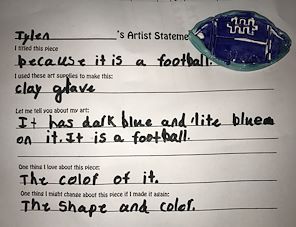 Tylen 's Artist Stateme
I titled this piece
because it is a football.
I used these art supplies to make this:
clay glave
Let me tell you about my art:
It has dark blue and lite bluem
on it. It is a football.
One thing I love about this piece:
The color of it.
One thing I might change about this piece if I made it again:
The Shape and color.